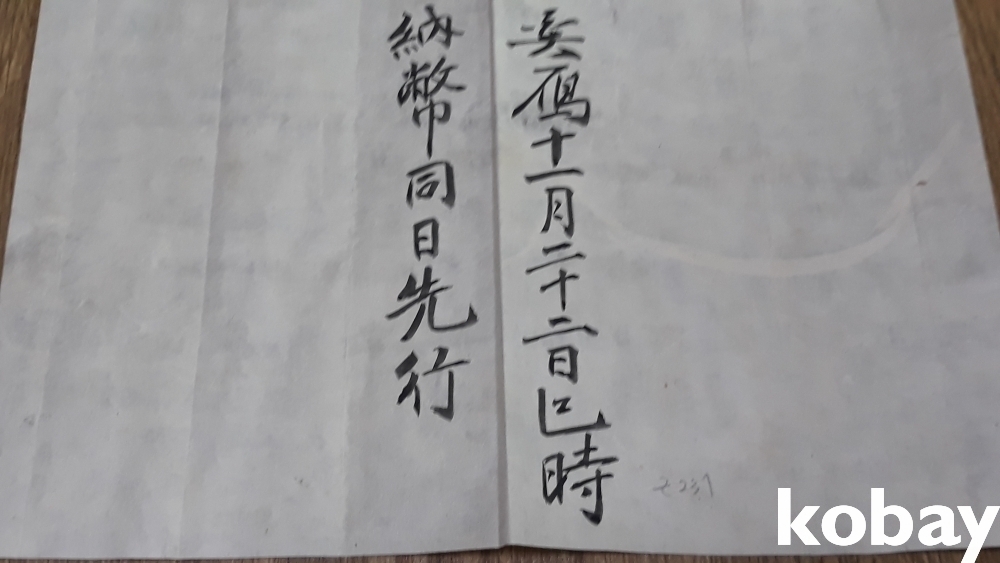 奠鴈十一月二十二日巳時
納幣同日先行
kobay